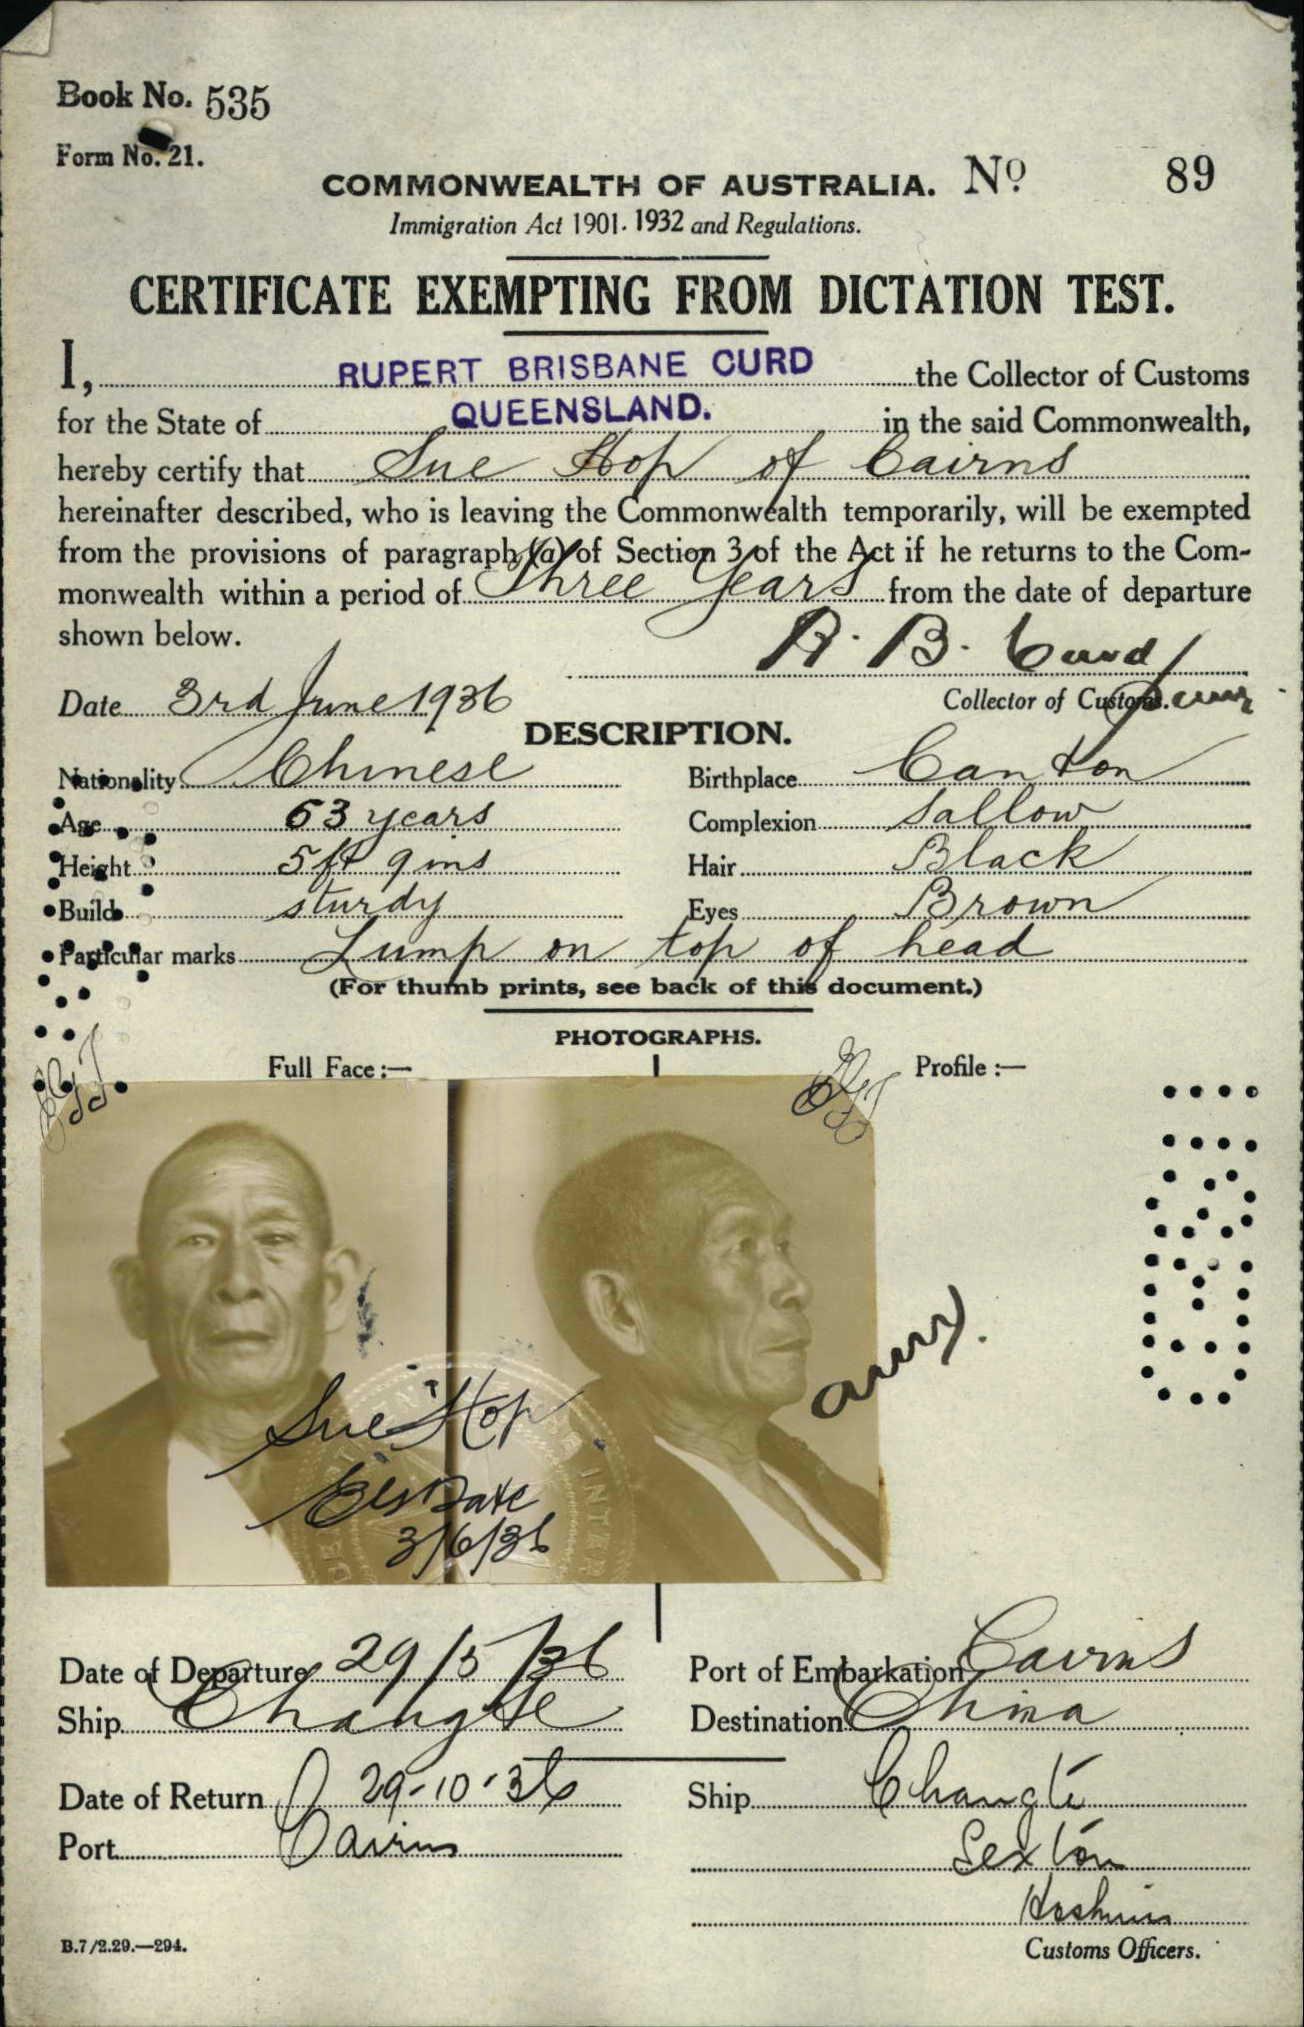 Book No. 535
Form No. 21.
COMMONWEALTH OF AUSTRALIA. No 89
Immigration Act 1901-1932 and Regulations.
CERTIFICATE EXEMPTING FROM DICTATION TEST.
I, RUPERT BRISBANE CURD the Collector of Customs
for the State of QUEENSLAND. in the said Commonwealth,
hereby certify that Sue Hop of Cairns
hereinafter described, who is leaving the Commonwealth temporarily, will be exempted
from the provisions of paragraph (a) of Section 3 of the Act if he returns to the Com-
monwealth within a period of Three Years from the date of departure
shown below.
R. B. Curd
Date 3rd June 1936 Collector of Customs.
DESCRIPTION.
Nationality Chinese Birthplace Canton
Age 63 years Complexion Sallow
Height 5 ft 9 ins Hair Black
Build sturdy Eyes Brown
Particular marks Lump on top of head
(For thumb prints, see back of this document.)
PHOTOGRAPHS.
Full Face :— Profile :—
Sue Hop
3/6/36
Date of Departure 29/5/36 Port of Embarkation Cairns
Ship Changte Destination China
Date of Return 29-10-36 Ship Changte
Port Cairns Sexton
Hoskins
B.7/2.29.—294. Customs Officers.